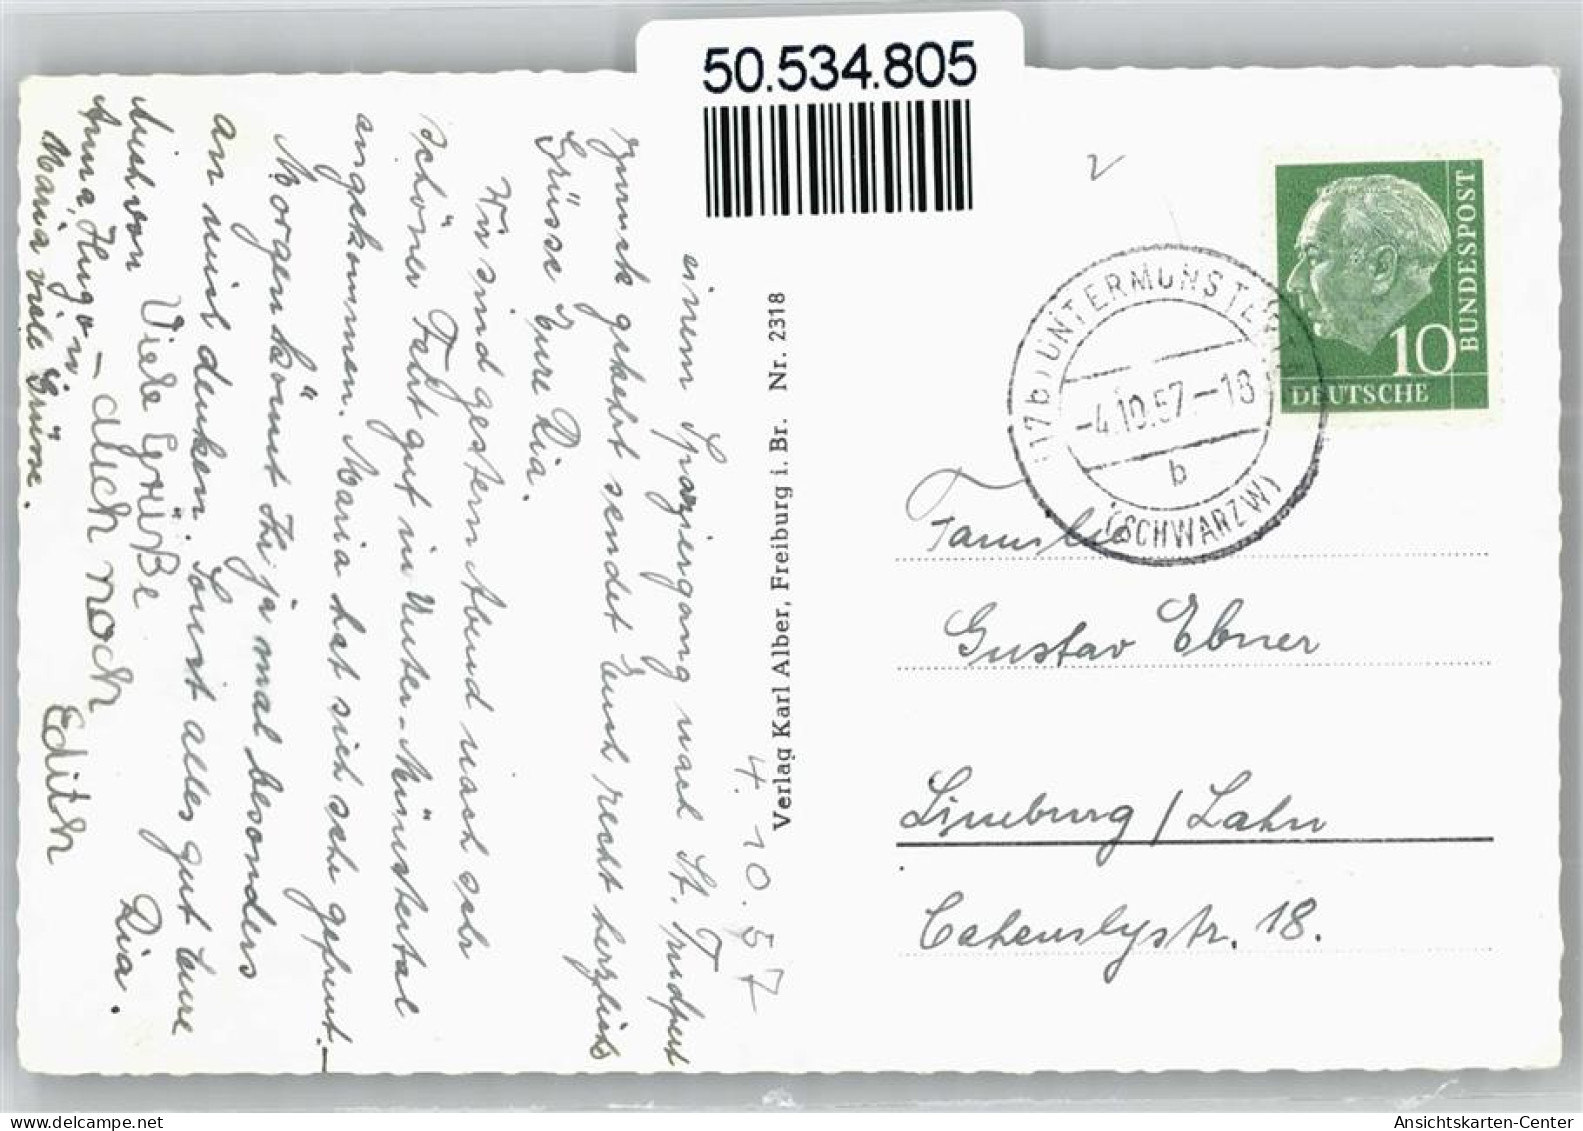 50.534.805
2
DEUTSCHE
BUNDESPOST
10
(17b) UNTERMÜNSTERTAL
-4.10.57.-18
b
(SCHWARZW)
Familie
Gustav Ebner
Limburg/Lahn
Cahenslystr. 18.
Verlag Karl Alber, Freiburg i. Br. Nr. 2318
4. 10. 57
einem Spaziergang nach St. Trudpert
zurück gekehrt sendet Euch recht herzlich
Grüsse Eure Ria.
Wir sind gestern Abend nach sehr
schöner Fahrt gut in Unter-Münstertal
angekommen. Maria hat sich sehr gefreut.–
Morgen könnt Ihr ja mal besonders
an mich denken. Sonst alles gut Eure
Ria.
Auch von
Anna, Hugo u.
Maria viele Grüsse.
Viele Grüße
– auch noch
Edith
Ansichtskarten-Center